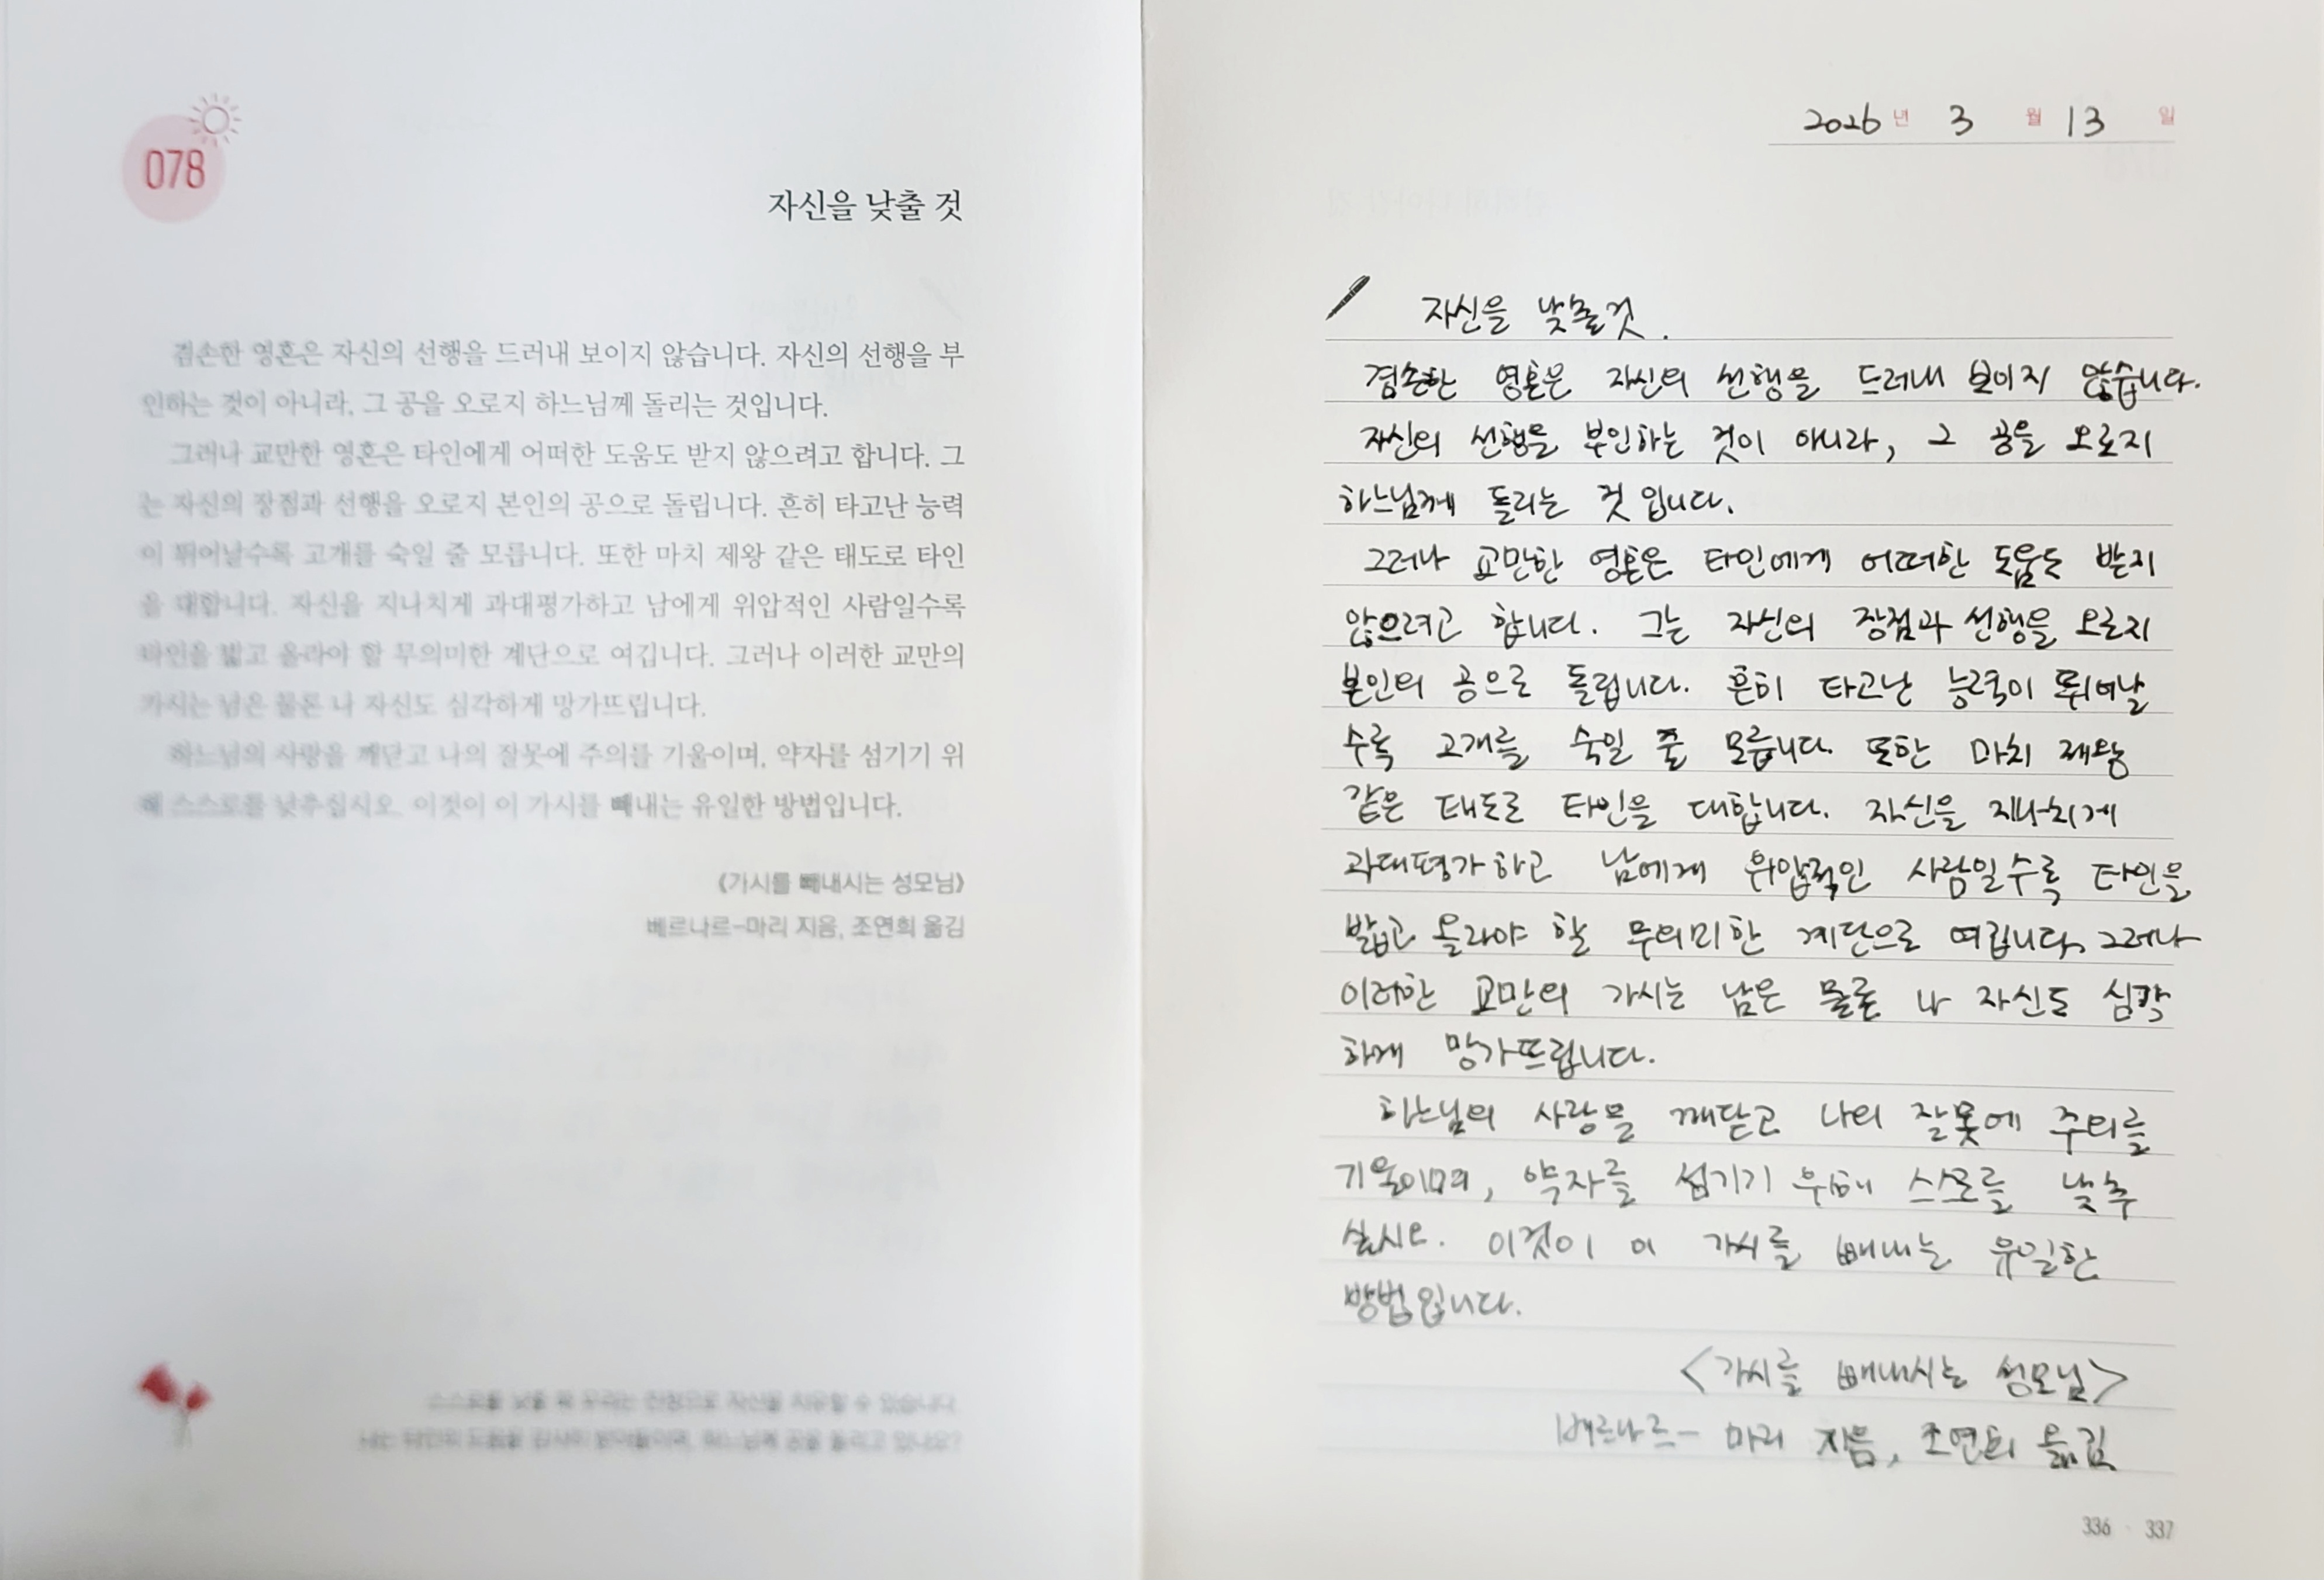 078
자신을 낮출 것
겸손한 영혼은 자신의 선행을 드러내 보이지 않습니다. 자신의 선행을 부
인하는 것이 아니라, 그 공을 오로지 하느님께 돌리는 것입니다.
그러나 교만한 영혼은 타인에게 어떠한 도움도 받지 않으려고 합니다. 그
는 자신의 장점과 선행을 오로지 본인의 공으로 돌립니다. 흔히 타고난 능력
이 뛰어날수록 고개를 숙일 줄 모릅니다. 또한 마치 제왕 같은 태도로 타인
을 대합니다. 자신을 지나치게 과대평가하고 남에게 위압적인 사람일수록
타인을 밟고 올라야 할 무의미한 계단으로 여깁니다. 그러나 이러한 교만의
가시는 남은 물론 나 자신도 심각하게 망가뜨립니다.
하느님의 사랑을 깨닫고 나의 잘못에 주의를 기울이며, 약자를 섬기기 위
해 스스로를 낮추십시오. 이것이 이 가시를 빼내는 유일한 방법입니다.
《가시를 빼내시는 성모님》
베르나르-마리 지음, 조연희 옮김
스스로를 낮출 때 우리는 진정으로 자신을 치유할 수 있습니다.
2026년 3월 13일
자신을 낮출것.
겸손한 영혼은 자신의 선행을 드러내 보이지 않습니다.
자신의 선행을 부인하는 것이 아니라, 그 공을 오로지
하느님께 돌리는 것 입니다.
그러나 교만한 영혼은 타인에게 어떠한 도움도 받지
않으려고 합니다. 그는 자신의 장점과 선행을 오로지
본인의 공으로 돌립니다. 흔히 타고난 능력이 뛰어날
수록 고개를 숙일 줄 모릅니다. 또한 마치 제왕
같은 태도로 타인을 대합니다. 자신을 지나치게
과대평가하고 남에게 위압적인 사람일수록 타인을
밟고 올라야 할 무의미한 계단으로 여깁니다. 그러나
이러한 교만의 가시는 남은 물론 나 자신도 심각
하게 망가뜨립니다.
하느님의 사랑을 깨닫고 나의 잘못에 주의를
기울이며, 약자를 섬기기 위해 스스로를 낮추
십시오. 이것이 이 가시를 빼내는 유일한
방법입니다.
<가시를 빼내시는 성모님>
베르나르- 마리 지음, 조연희 옮김
336 · 337